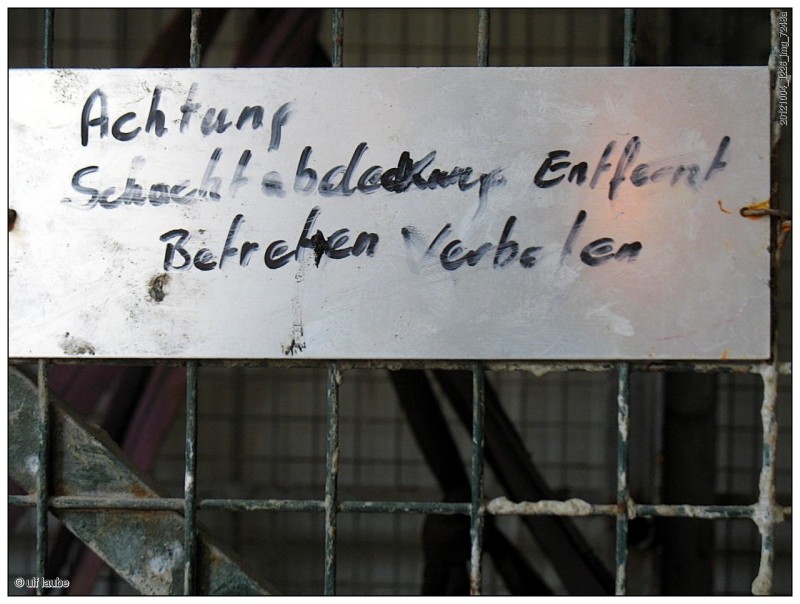 Achtung
Schachtabdeckung Entfernt
Betreten Verboten
© ulf laube